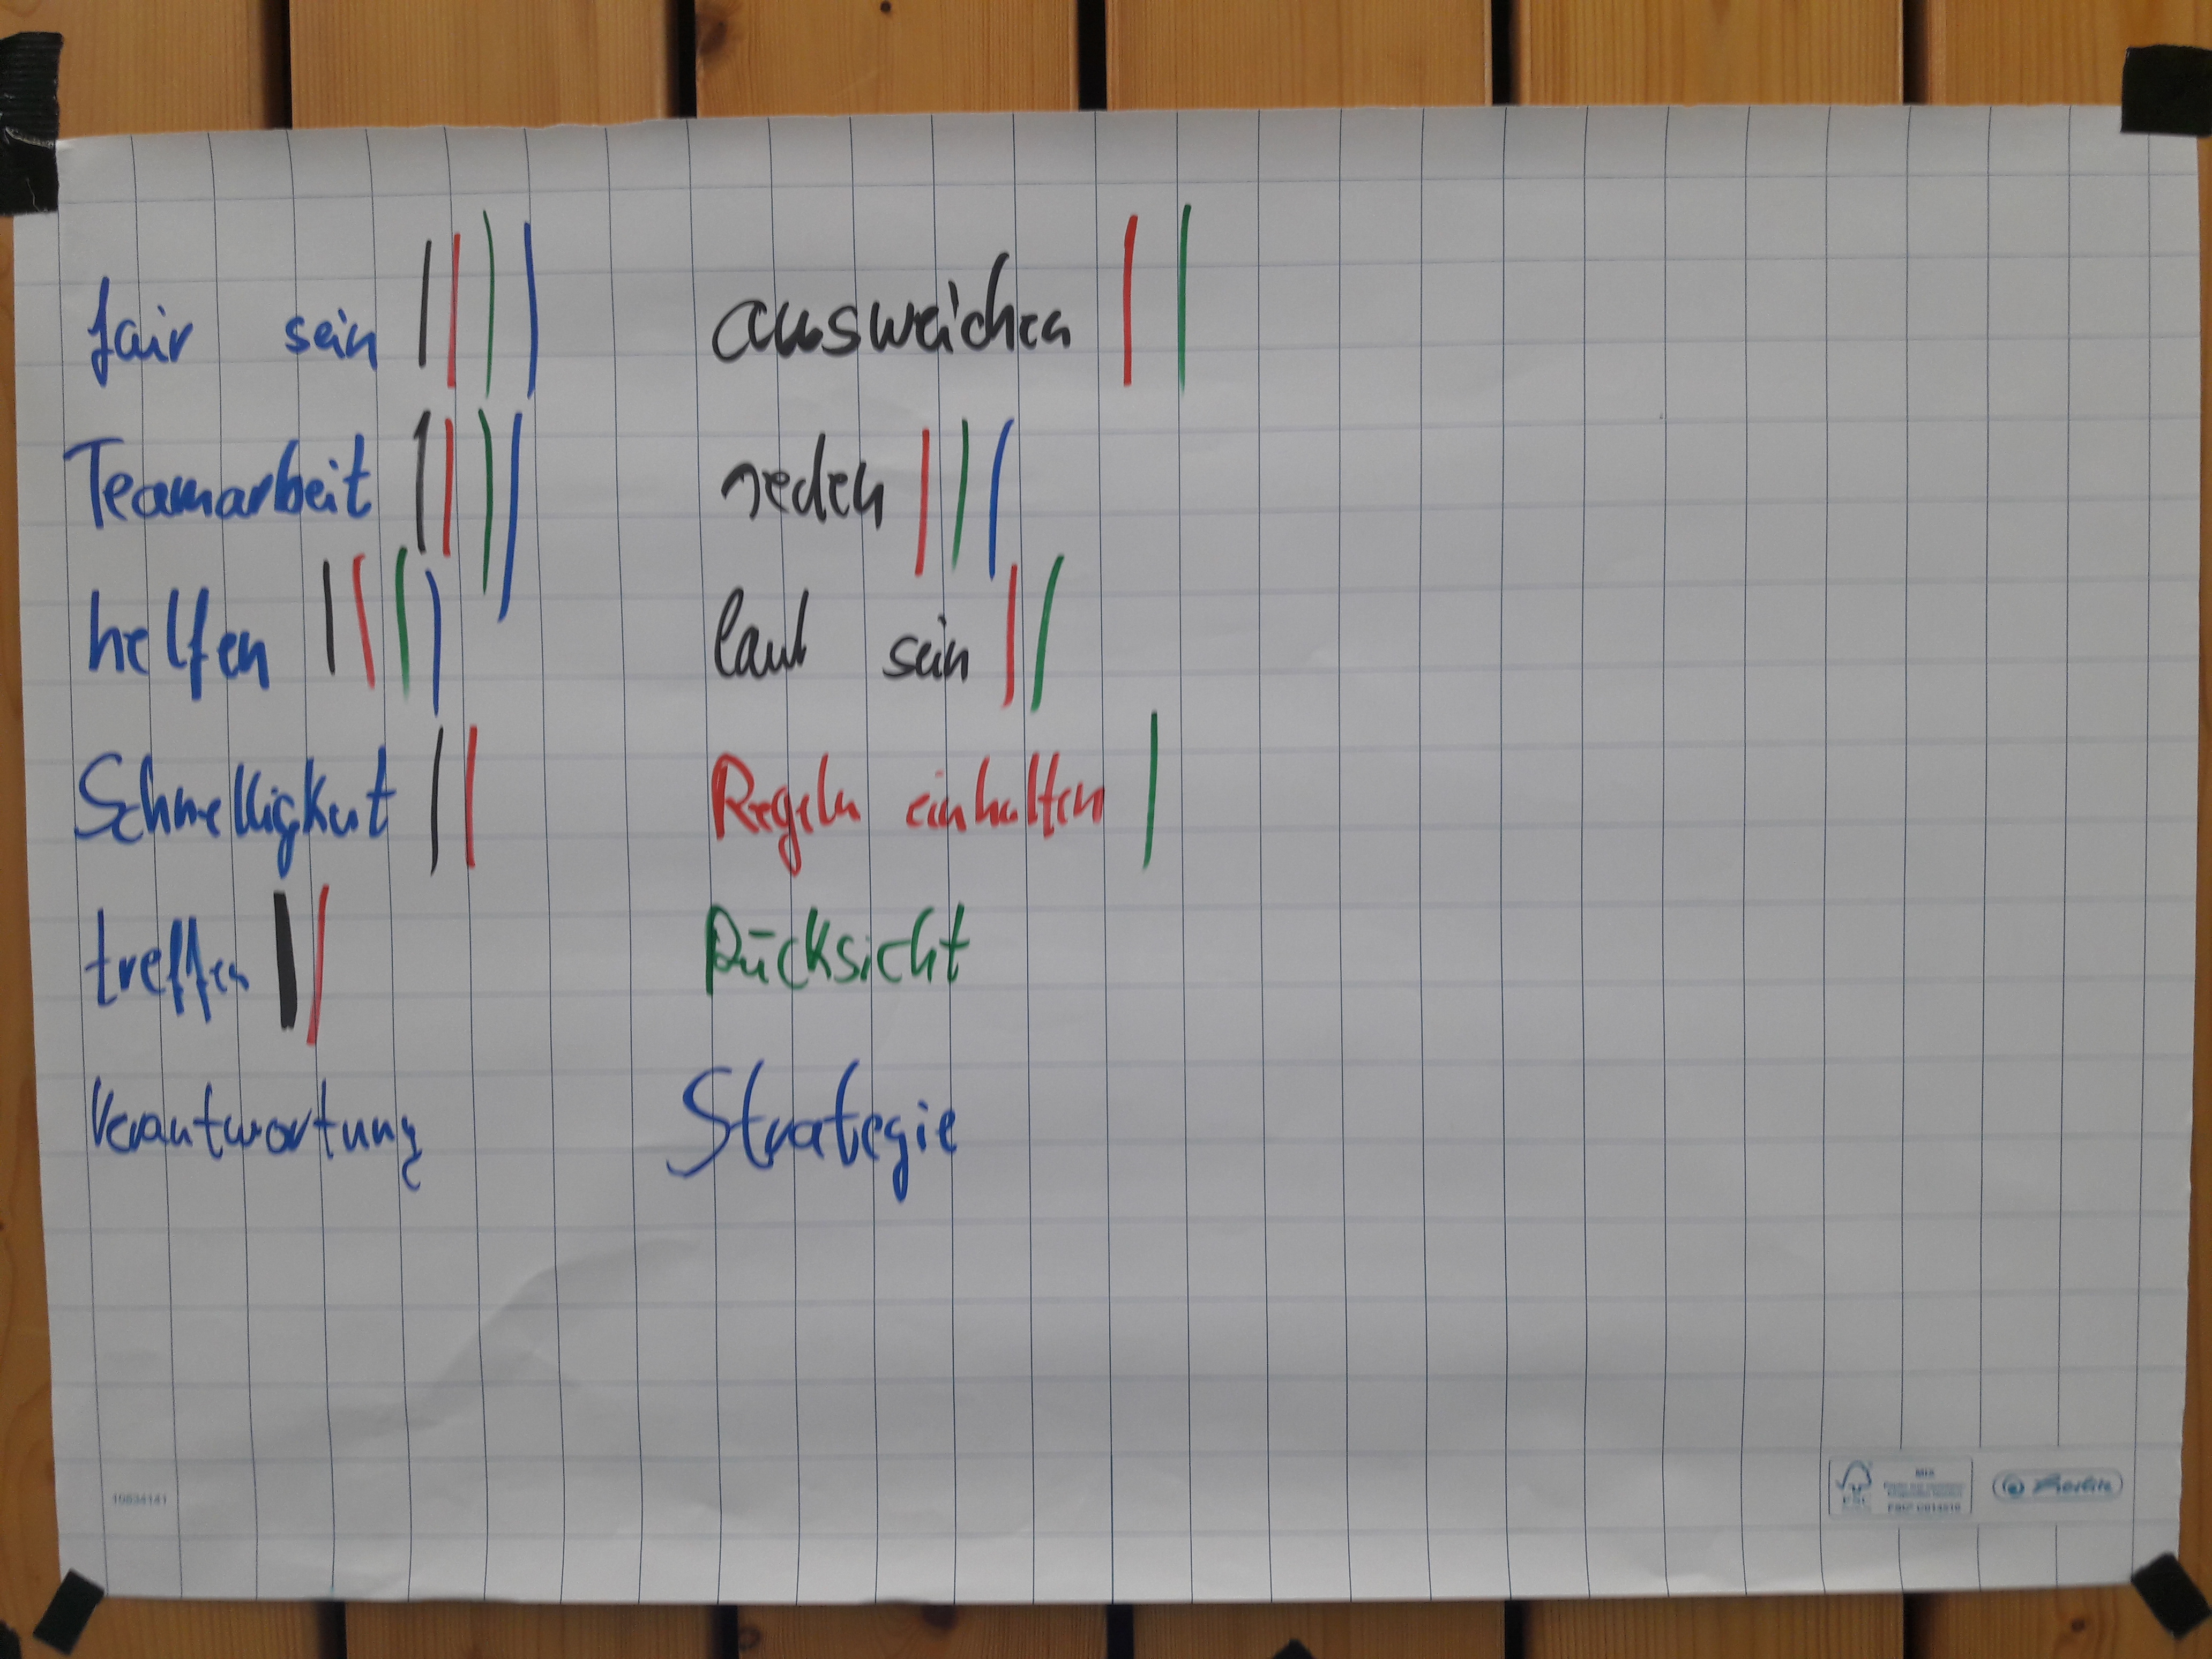 fair sein
Teamarbeit
helfen
Schnelligkeit
treffen
Verantwortung
ausweichen
reden
laut sein
Regeln einhalten
Rücksicht
Strategie
10834141
MIX
FSC
herlitz